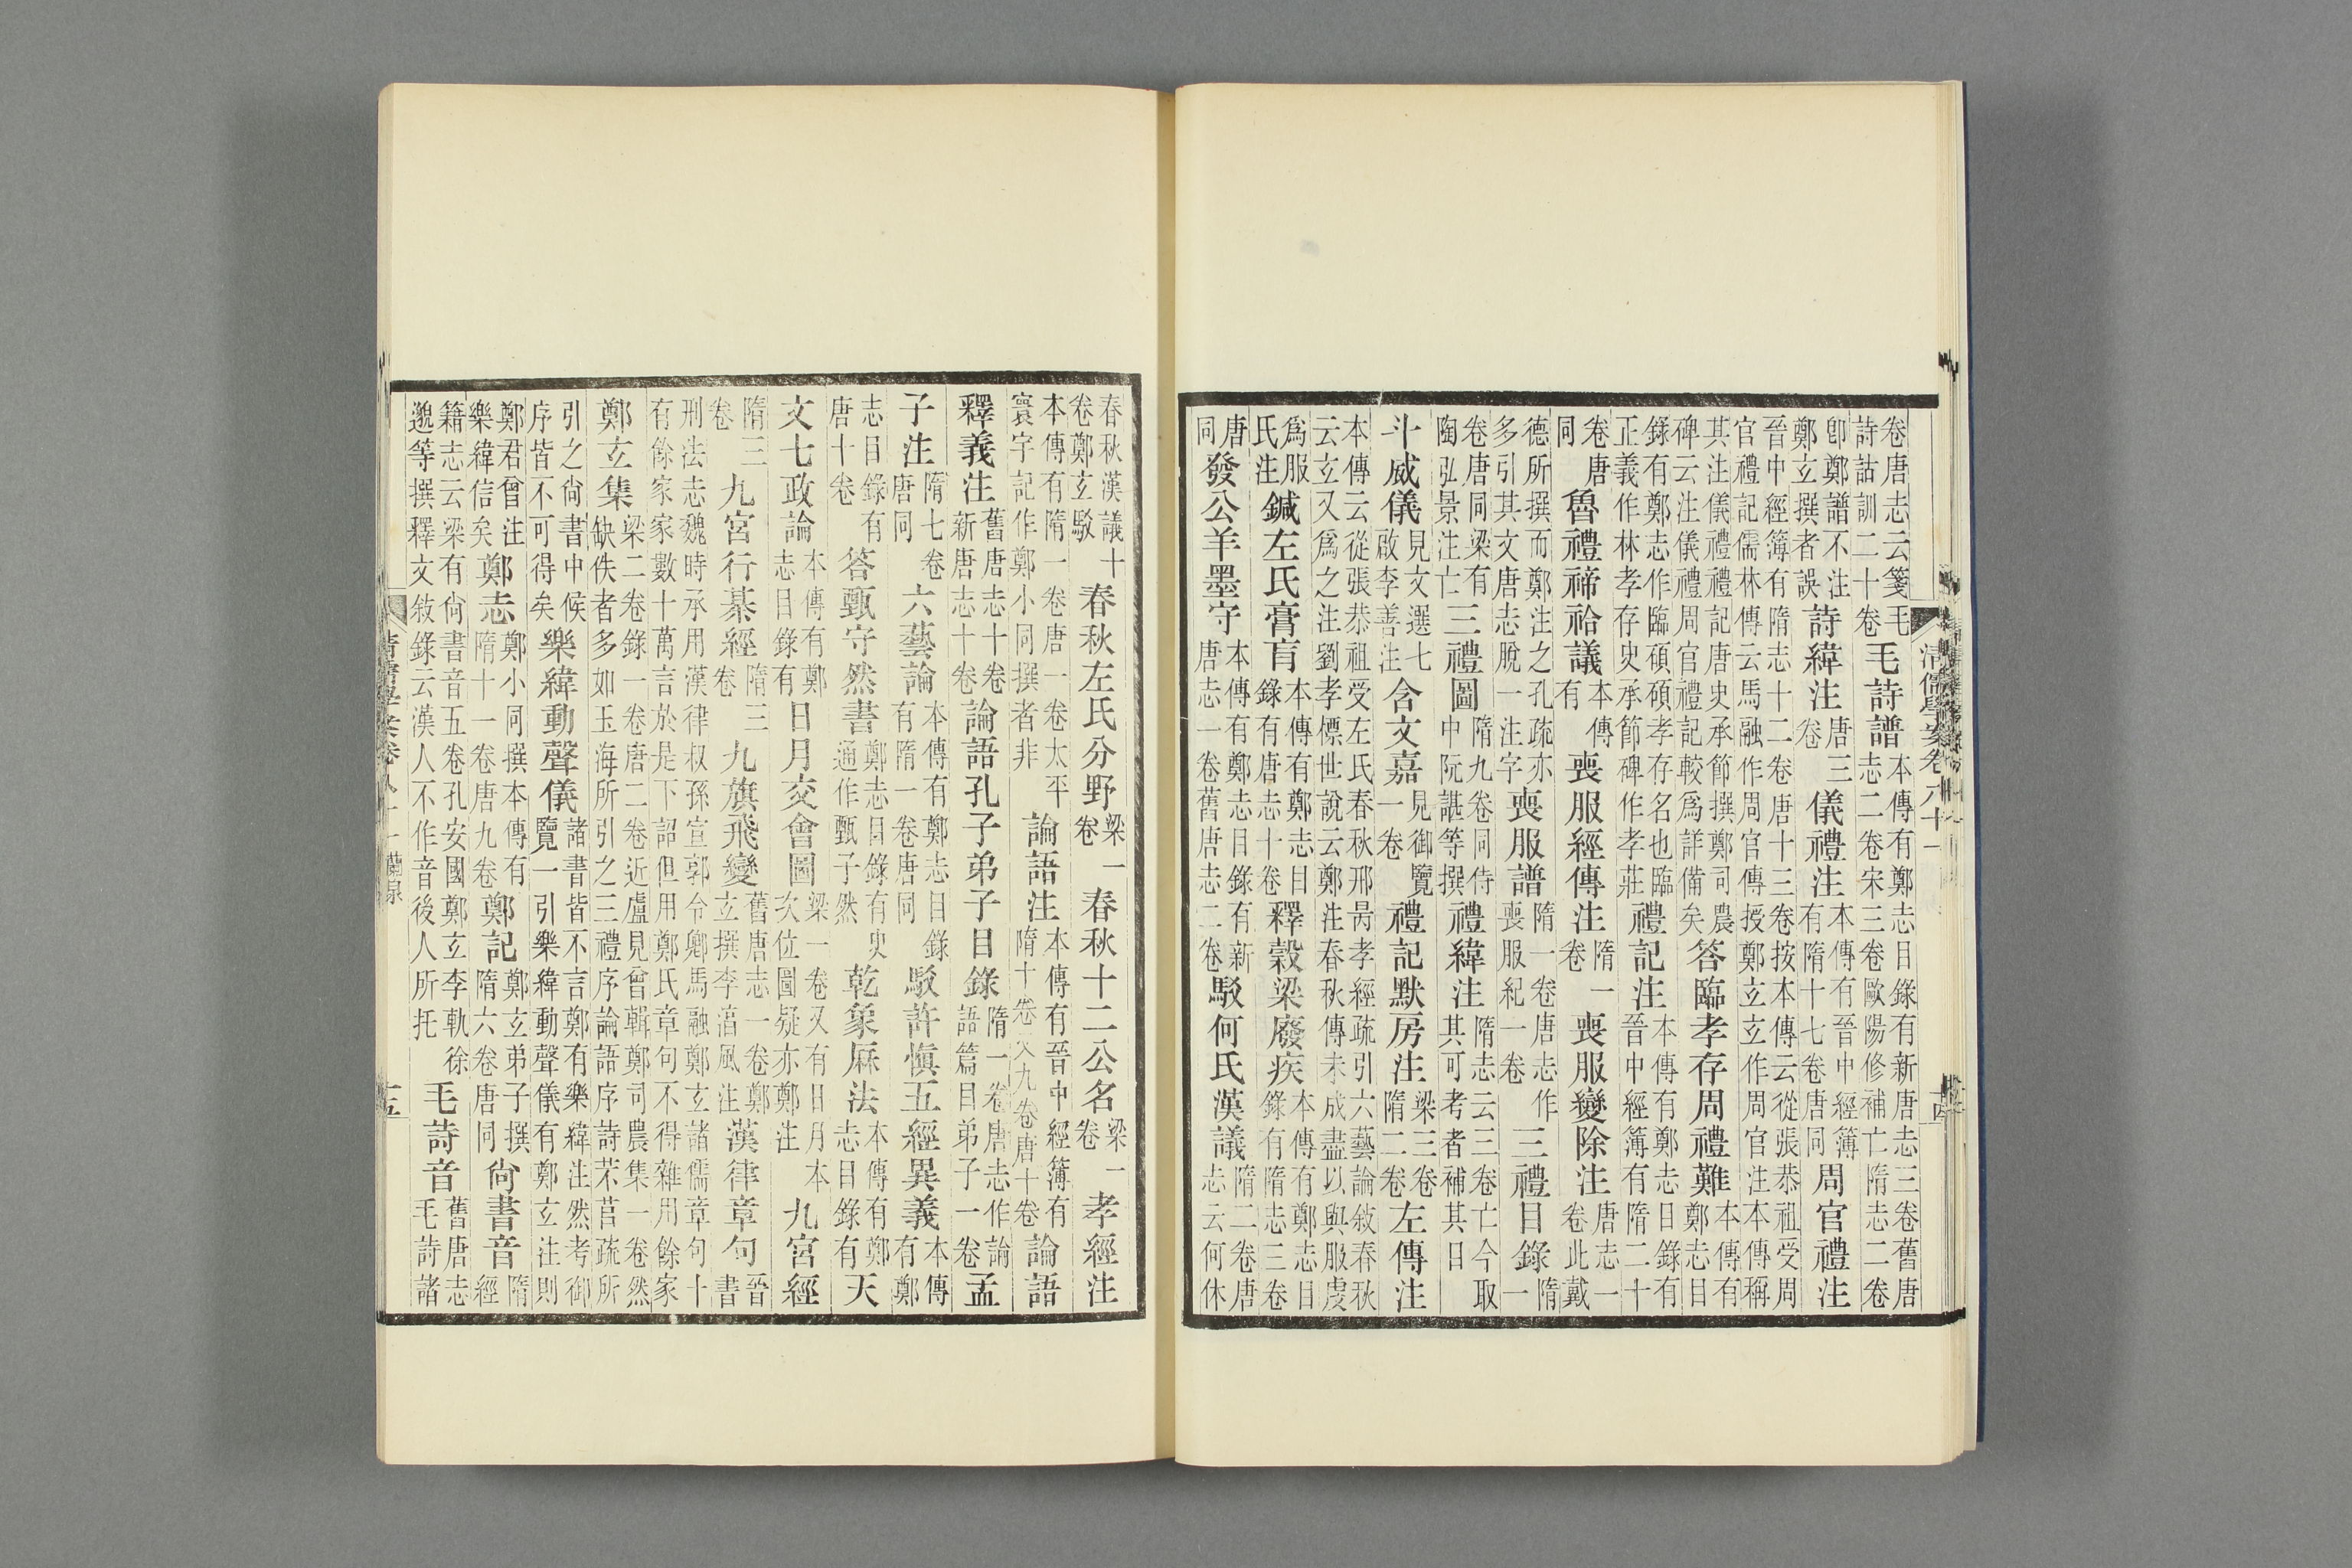 清儒學案卷八十一
十四
卷唐志云箋毛詩詁訓二十卷毛詩譜本傳有鄭志目錄有新唐志三卷舊唐志二卷宋三卷歐陽修補亡隋志二卷
卽鄭譜不注鄭玄撰者誤詩緯注唐三卷儀禮注本傳有晉中經簿有隋十七卷唐同周官禮注
晉中經簿有隋志十二卷唐十三卷按本傳云從張恭祖受周官禮記儒林傳云馬融作周官傳授鄭玄玄作周官注本傳稱
其注儀禮禮記唐史承節撰鄭司農碑云注儀禮周官禮記較爲詳備矣答臨孝存周禮難本傳有鄭志目
錄有鄭志作臨碩碩孝存名也臨正義作林孝存史承節碑作孝莊禮記注本傳有鄭志目錄有晉中經簿有隋二十
卷唐同魯禮禘祫議本傳有喪服經傳注隋一卷喪服變除注唐志一卷此戴
德所撰而鄭注之孔疏亦多引其文唐志脫一注字喪服譜隋一卷唐志作喪服紀一卷三禮目錄隋一
卷唐同梁有陶弘景注亡三禮圖隋九卷同侍中阮諶等撰禮緯注隋志云三卷亡今取其可考者補其日
斗威儀見文選七啟李善注含文嘉見御覽一卷禮記默房注梁三卷隋二卷左傳注
本傳云從張恭祖受左氏春秋邢昺孝經疏引六藝論敘春秋云玄又爲之注劉孝標世說云鄭注春秋傳未成盡以與服虔
爲服氏注鍼左氏膏肓本傳有鄭志目錄有唐志十卷釋穀梁廢疾本傳有鄭志目錄有隋志三卷
唐同發公羊墨守本傳有鄭志目錄有新唐志一卷舊唐志二卷駁何氏漢議隋二卷唐志云何休
春秋漢議十卷鄭玄駁春秋左氏分野梁一卷春秋十二公名梁一卷孝經注
本傳有隋一卷唐一卷太平寰宇記作鄭小同撰者非論語注本傳有晉中經簿有隋十卷又九卷唐十卷論語
釋義注舊唐志十卷新唐志十卷論語孔子弟子目錄隋一卷唐志作論語篇目弟子一卷孟
子注隋七卷唐同六藝論本傳有鄭志目錄有隋一卷唐同駁許慎五經異義本傳有鄭
志目錄有唐十卷答甄守然書鄭志目錄有史通作甄子然乾象厤法本傳有鄭志目錄有天
文七政論本傳有鄭志目錄有日月交會圖梁一卷又有日月本次位圖疑亦鄭注九宮經
隋三卷九宮行棊經隋三卷九旗飛變舊唐志一卷鄭玄撰李淳風注漢律章句晉書
刑法志魏時承用漢律叔孫宣郭令卿馬融鄭玄諸儒章句十有餘家家數十萬言於是下詔但用鄭氏章句不得雜用餘家
鄭玄集梁二卷錄一卷唐二卷近盧見曾輯鄭司農集一卷然缺佚者多如玉海所引之三禮序論語序詩芣苢疏所
引之尙書中候序皆不可得矣樂緯動聲儀諸書皆不言鄭有樂緯注然考御覽一引樂緯動聲儀有鄭玄注則
鄭君曾注樂緯信矣鄭志鄭小同撰本傳有隋十一卷唐九卷鄭記鄭玄弟子撰隋六卷唐同尙書音隋經
籍志云梁有尙書音五卷孔安國鄭玄李軌徐邈等撰釋文敘錄云漢人不作音後人所托毛詩音舊唐志毛詩諸
清儒學案卷八十一 蘭泉
十五